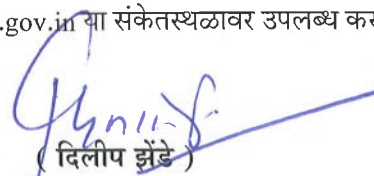 .gov.in या संकेतस्थळावर उपलब्ध कर
( दिलीप झेंडे )